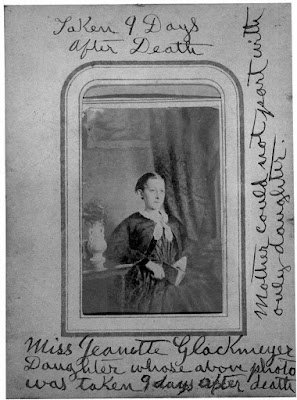 Taken 9 Days
After Death
Mother could not part with
only daughter.
Miss Jeanette Glackmeyer
Daughter whose above photo
was taken 9 days after death